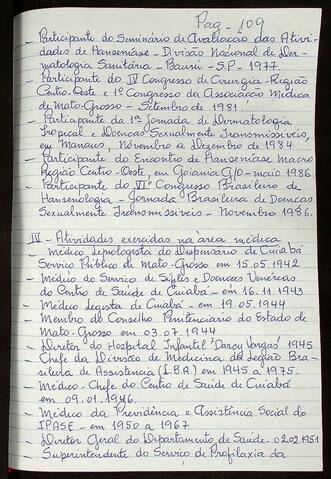 Pag - 109
- Participante do Seminário de Avaliação das Ativi-
dades de Hanseníase - Divisão Nacional de Der-
matologia Sanitária - Bauru - S.P - 1977.
- Participante do IV Congresso de Cirurgia - Região
Centro-Oeste e 1º Congresso da Associação Médica
de Mato-Grosso - Setembro de 1981.
- Participante da 1ª Jornada de Dermatologia
Tropical e Doenças Sexualmente Transmissíveis,
em Manaus, Novembro a Dezembro de 1984
- Participante do Encontro de Hanseníase Macro
Região Centro-Oeste, em Goiania G/O - maio 1986
- Participante do VIº Congresso Brasileiro de
Hansenologia - Jornada Brasileira de Doenças
Sexualmente Transmissíveis - Novembro 1986.
IV - Atividades exercidas na área médica
- Médico Leprologista do Dispensário de Cuiabá
Serviço Público de Mato-Grosso em 15.05.1942
- Médico do Serviço de Sífilis e Doenças Venéreas
do Centro de Saúde de Cuiabá - em 16.11.1943
- Médico Legista de Cuiabá - em 19.05.1944
- Membro do Conselho Penitenciário do Estado de
Mato-Grosso em 03.07.1944
- Diretor do Hospital Infantil "Darcy Vargas" 1945
- Chefe da Divisão de Medicina da Legião Bra-
sileira de Assistência (L.B.A.) em 1945 a 1975.
- Médico-Chefe do Centro de Saúde de Cuiabá
em 09.01.1946.
- Médico da Previdência e Assistência Social do
IPASE - em 1950 a 1967
- Diretor Geral do Departamento de Saúde - 02.02.1951
- Superintendente do Serviço de Profilaxia da